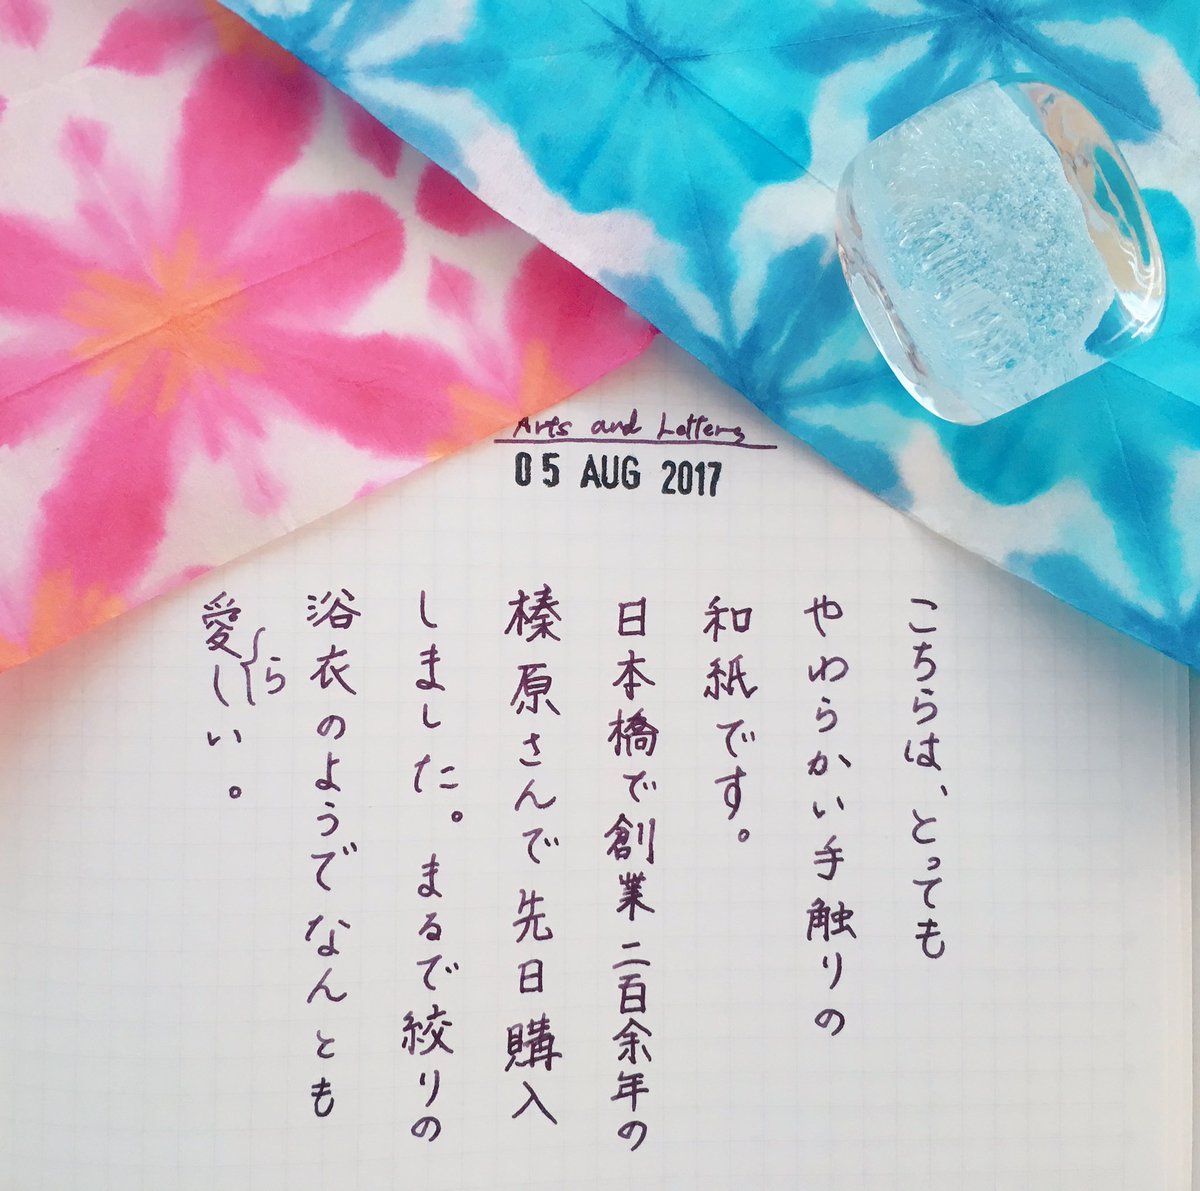 Arts and Letters
05 AUG 2017
こちらは、とっても
やわらかい手触りの
和紙です。
日本橋で創業二百余年の
榛原さんで先日購入
しました。まるで絞りの
浴衣のようでなんとも
愛しい。
ら